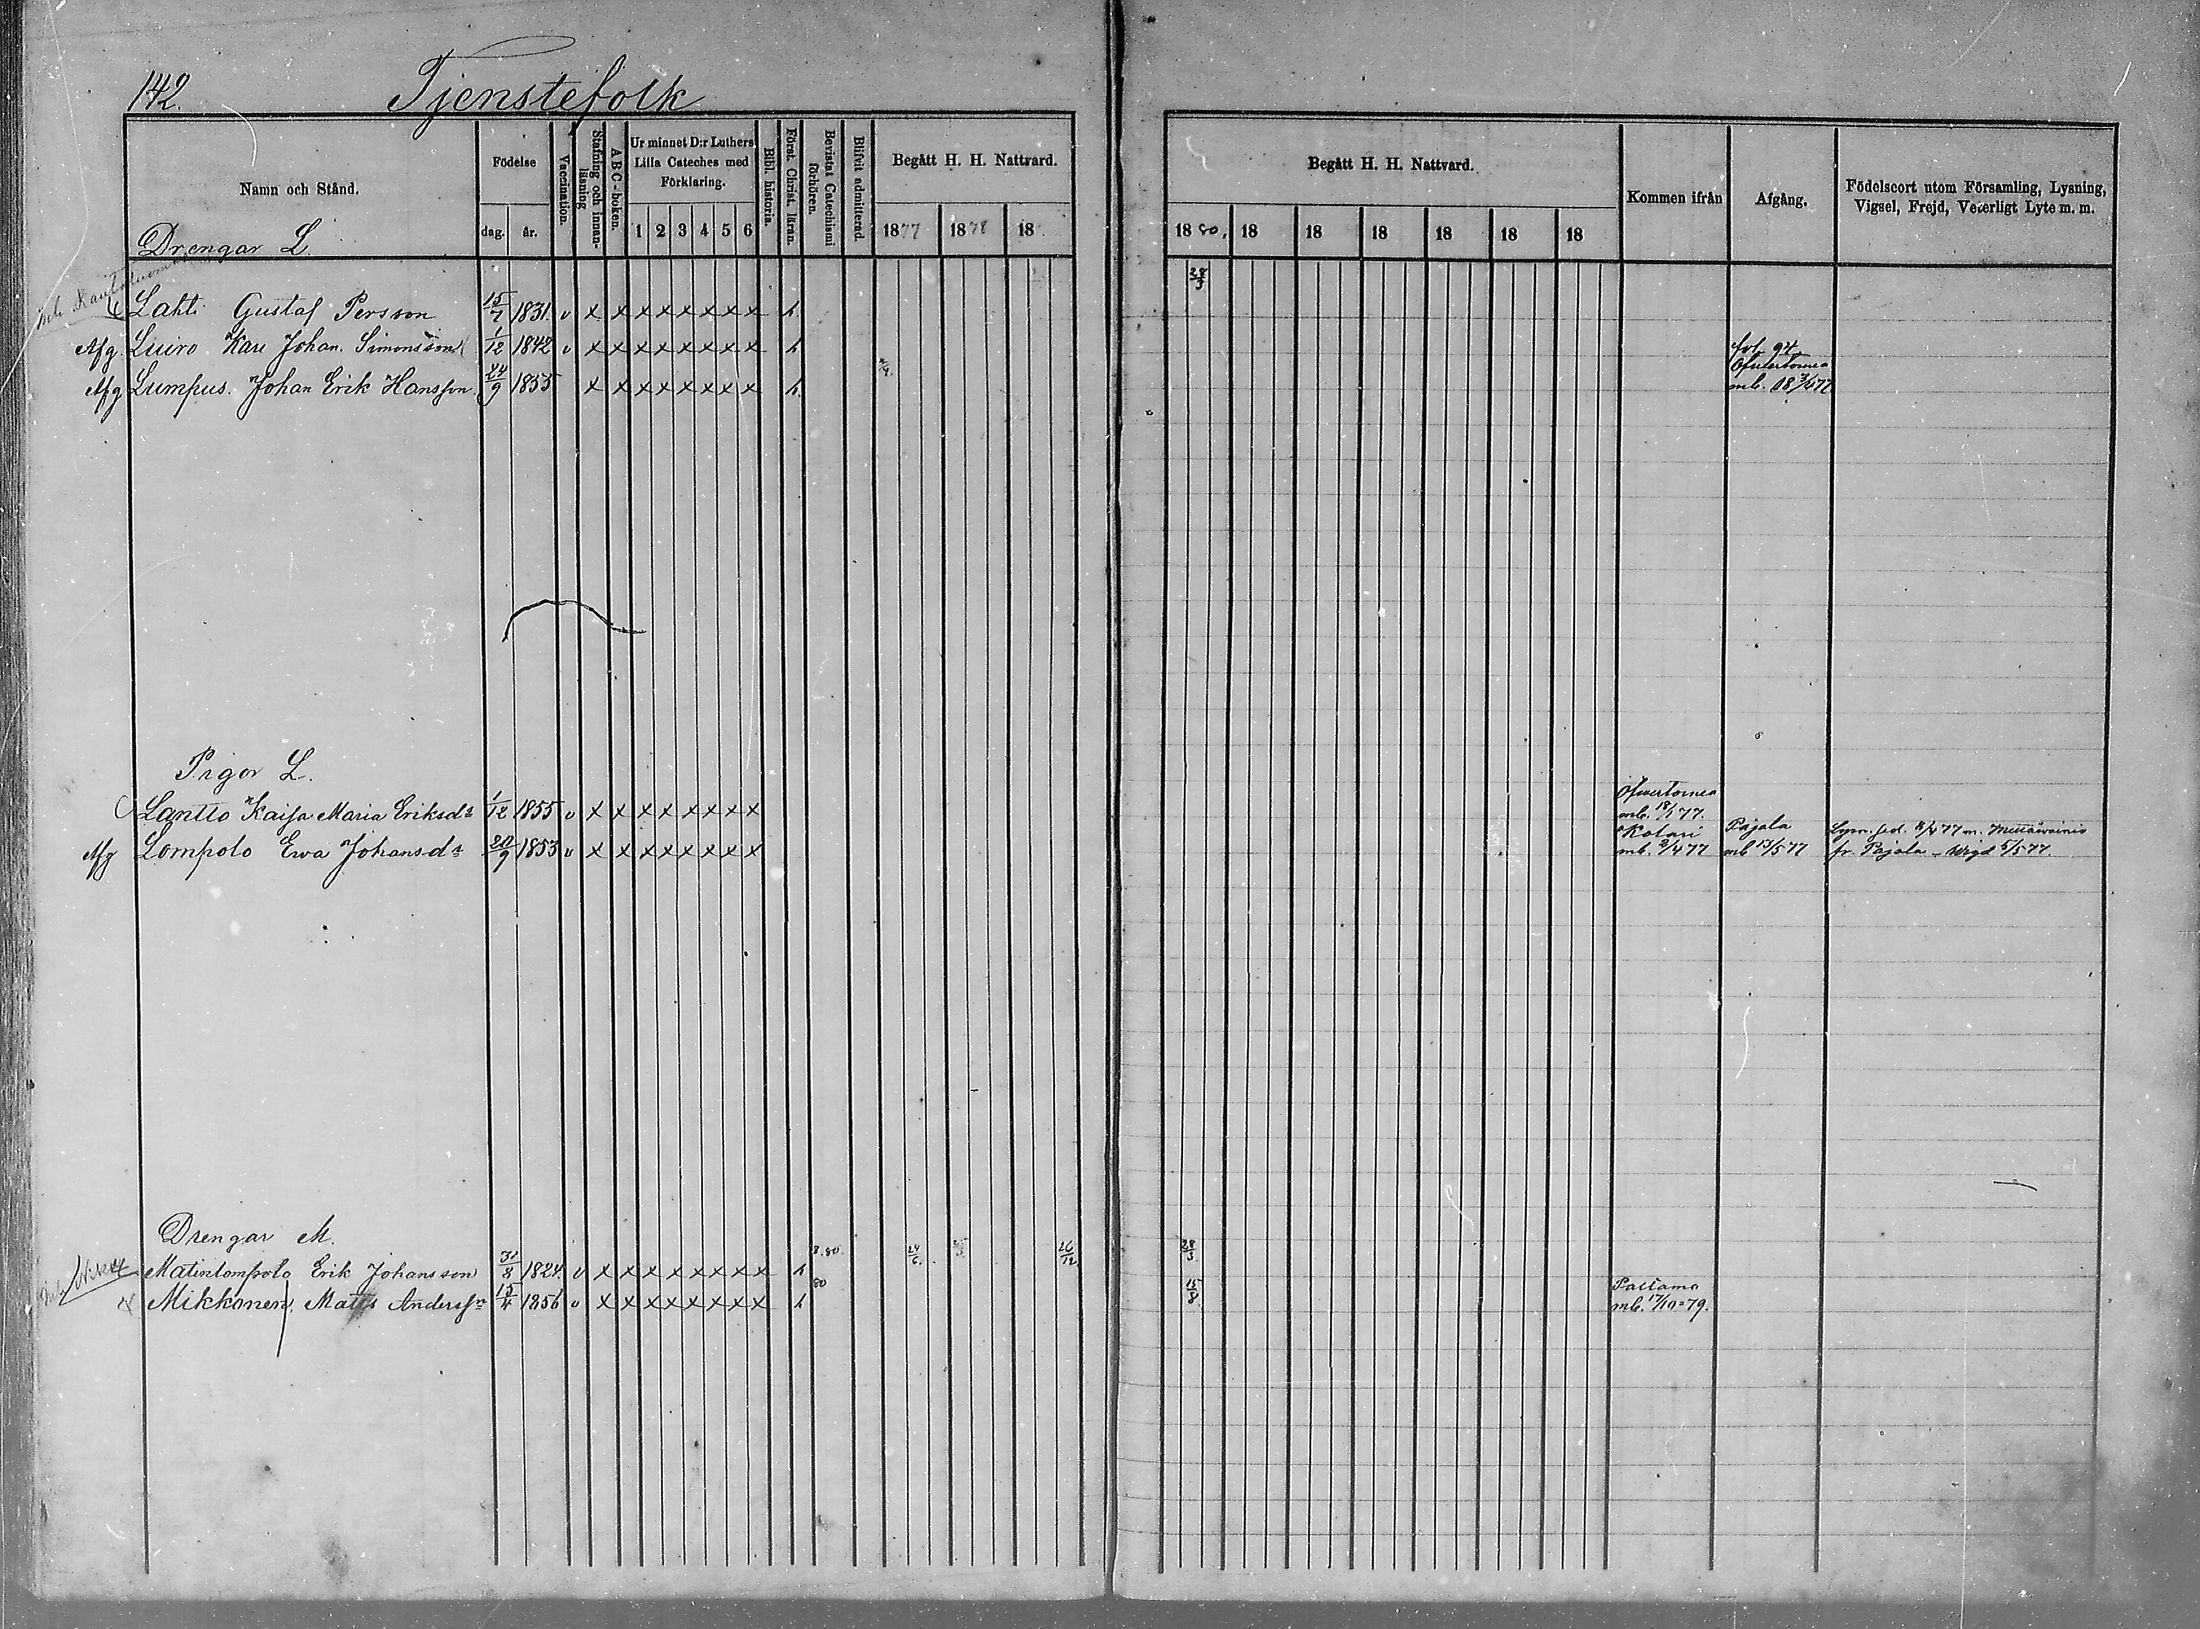 142.
Tjenstefolk
Namn och Stånd.
Födelse
dag. år.
Vaccination.
Stafning och innan-läsning
A B C-boken.
Ur minnet D:r Luthers
Lilla Cateches med
Förklaring.
1 2 3 4 5 6
Bibl. historia.
Först. Christ. läran.
Bevistat Catechismi förhören.
Blifvit admitterad.
Begått H. H. Nattvard.
1877 1878 18
Begått H. H. Nattvard.
1880. 18 18 18 18 18 18
Kommen ifrån
Afgång.
Födelseort utom Församling, Lysning,
Vigsel, Frejd, Veterligt Lyte m. m.
Drengar L.
28/3
Lahti Gustaf Persson 15/7 1831. v x x x x x x x x h.
Afg. Luiro Kare Johan Simonsson 1/12 1842 v x x x x x x x x h fol. 94
Öfvertornea
Afg Lumpus. Johan Erik Hansson. 24/9 1855 x x x x x x x x h. mb.
Pigor L.
Öfvertornea
Lantto Kaisa Maria Eriksdr 1/12 1855 v x x x x x x x x mb. 18/1 77.
Kolari Pajala
Afg Lompolo Ewa Johansdr 20/9 1853 v x x x x x x x x mb. 2/4 77 mb 13/5 77 fr. Pajala - wigd 5/5 77.
Drengar M.
Matinlompolo Erik Johansson 31/8 1824. v x x x x x x x x h 8.80. 24/6. 26/12 28/3
Mikkonen, Matts Anderssn 15/4 1856 v x x x x x x x x h 80 15/8 Paltamo
mb. 17/10 79.